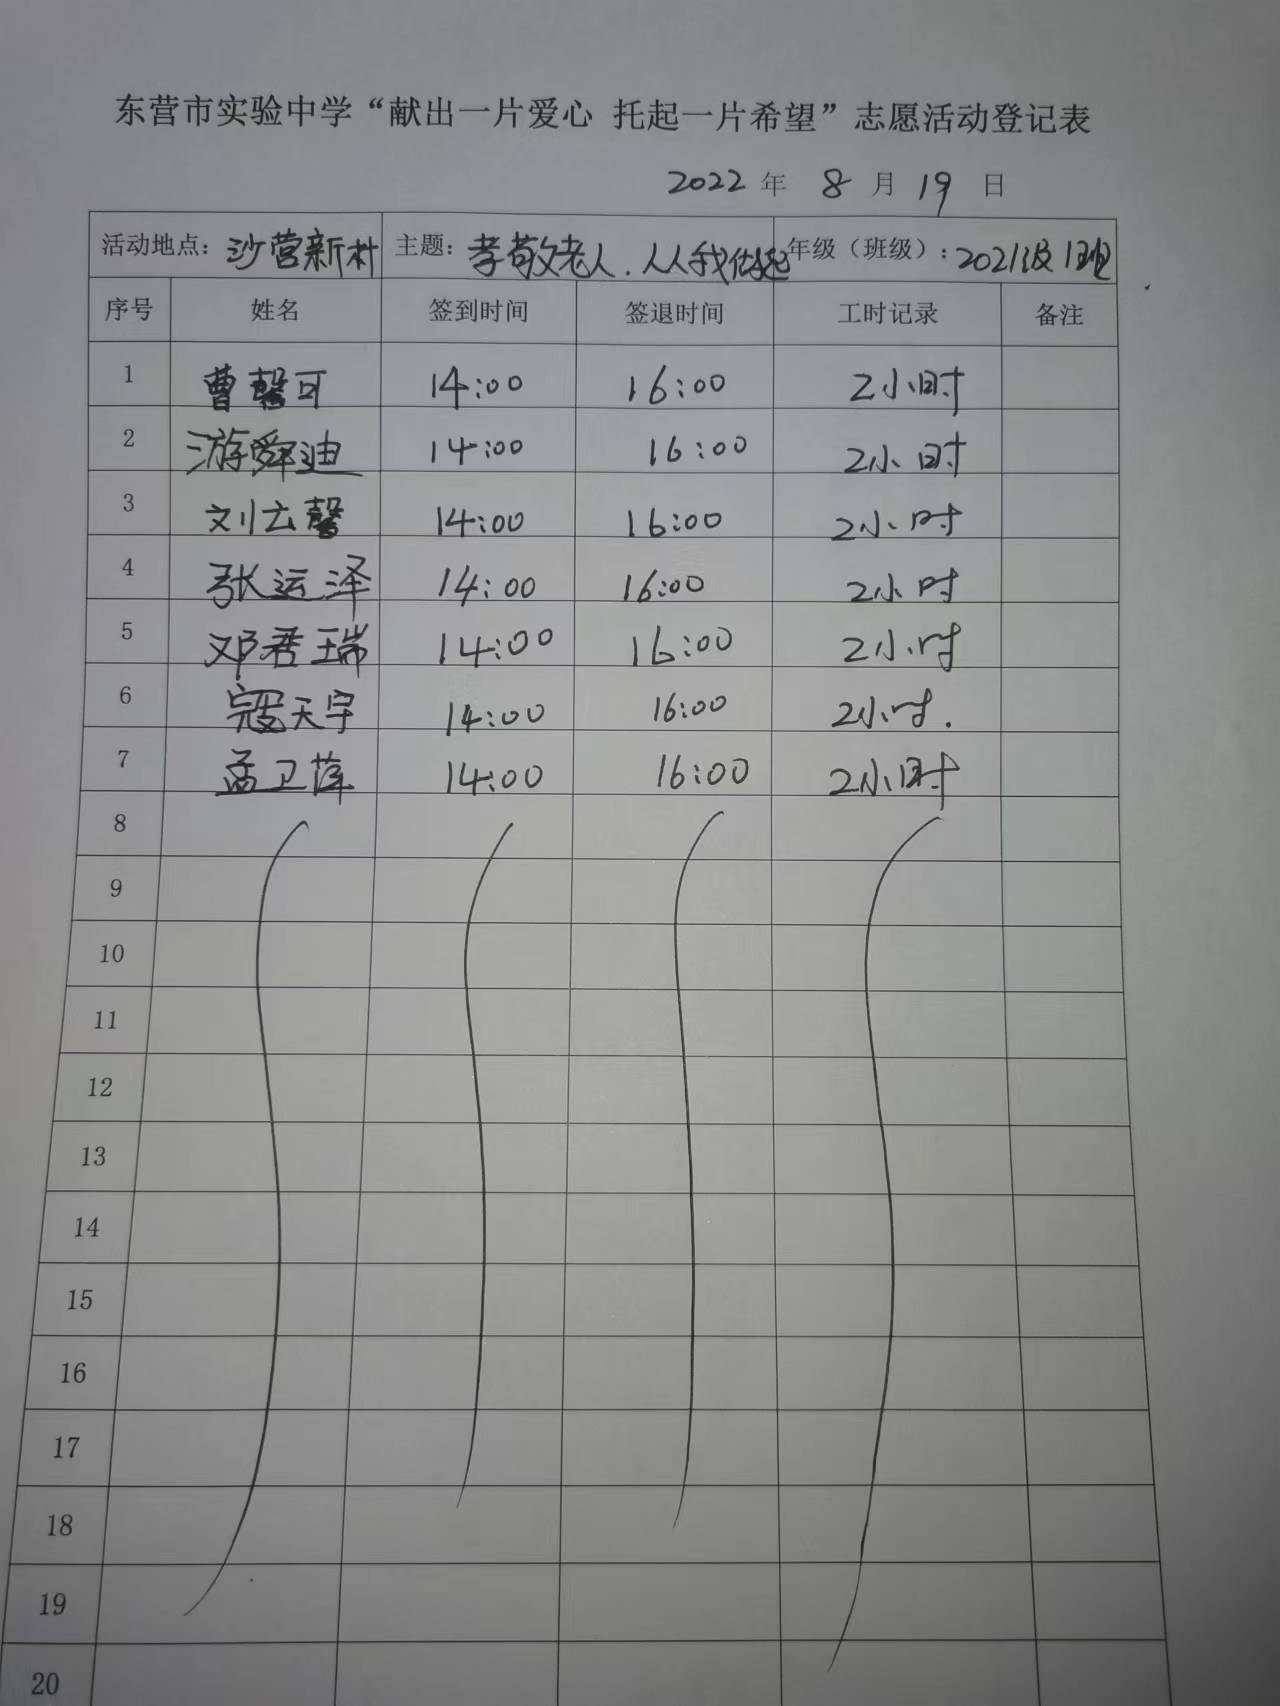 东营市实验中学“献出一片爱心 托起一片希望”志愿活动登记表
2022 年 8 月 19 日
活动地点：沙营新村 主题：孝敬老人．从我做起 年级（班级）：2021级1班
序号 姓名 签到时间 签退时间 工时记录 备注
1 曹馨可 14:00 16:00 2小时
2 游舜迪 14:00 16:00 2小时
3 刘云馨 14:00 16:00 2小时
4 张运泽 14:00 16:00 2小时
5 邓君瑞 14:00 16:00 2小时
6 寇天宇 14:00 16:00 2小时.
7 孟卫萍 14:00 16:00 2小时
8
9
10
11
12
13
14
15
16
17
18
19
20